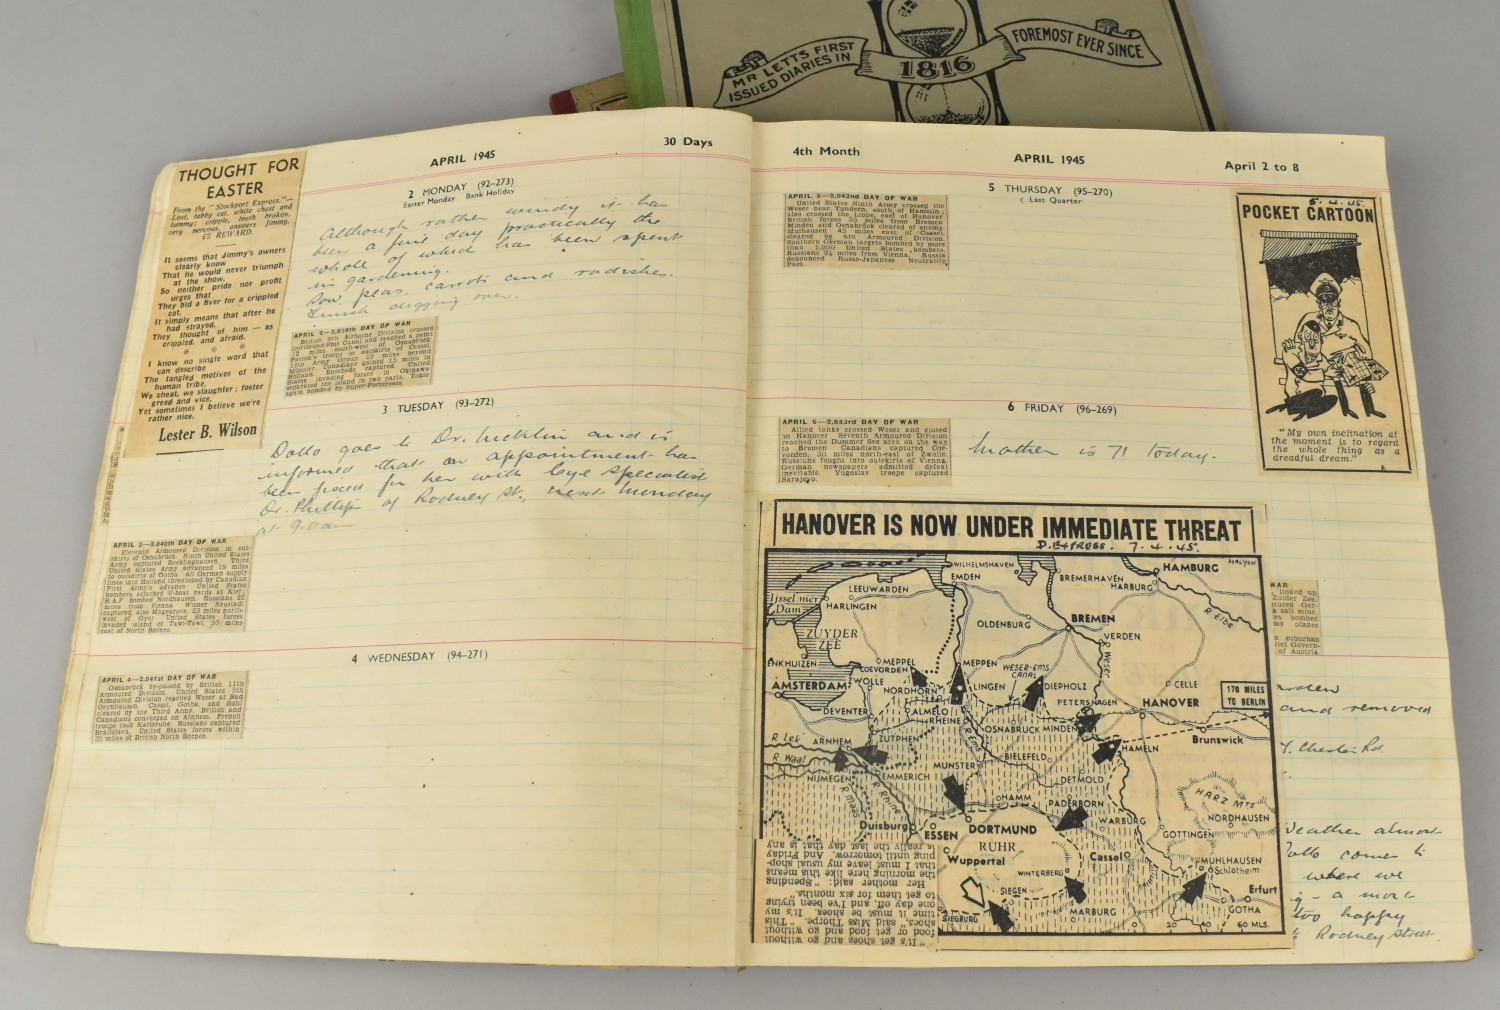 MR LETTS FIRST
ISSUED DIARIES IN
1816
FOREMOST EVER SINCE
APRIL 1945
30 Days
THOUGHT FOR
EASTER
From the "Stockport Express."—
Lost, tabby cat, white chest and
tummy; cripple, teeth broken,
very nervous, answers Jimmy,
£5 REWARD.
It seems that Jimmy's owners
clearly know
That he would never triumph
at the show,
So neither pride nor profit
urges that
They bid a fiver for a crippled
cat.
It simply means that after he
had strayed,
They thought of him — as
crippled, and afraid.
* * *
I know no single word that
can describe
The tangled motives of the
human tribe,
We cheat, we slaughter; foster
greed and vice,
Yet sometimes I believe we're
rather nice.
Lester B. Wilson
2 MONDAY (92-273)
Easter Monday Bank Holiday
Although rather windy it has
been a fine day practically the
whole of which has been spent
in gardening.
Sow peas, carrots and radishes.
Finish digging over.
APRIL 2—2,039th DAY OF WAR
British 6th Airborne Division crossed
Dortmund-Ems Canal and reached a point
12 miles south-west of Osnabruck
Patton's troops in outskirts of Cassel.
12th Army Group 12 miles beyond
Munster. Canadians gained 15 miles in
Holland. Enschede captured United
States invading forces in Okinawa
separated the island in two parts. Tokio
again bombed by Super-Fortresses.
3 TUESDAY (93-272)
Dollo goes to Dr. and is
informed that an appointment has
been fixed for her with Eye Specialist
Dr. Phillips of Rodney St., next Monday
at 9.0am
APRIL 3—2,040th DAY OF WAR
Eleventh Armoured Division in out-
skirts of Osnabrück. Ninth United States
Army captured Recklinghausen. Third
United States Army advanced 19 miles
to outskirts of Gotha. All German supply
lines into Holland threatened by Canadian
First Army's advance United States
bombers attacked U-boat yards at Kiel;
R.A.F bombed Nordhausen. Russians 22
miles from Vienna Wiener Neustadt
captured, also Magyarova, 23 miles north-
west of Gyor. United States forces
invaded island of Tawi-Tawi, 30 miles
east of North Borneo.
4 WEDNESDAY (94-271)
APRIL 4—2,041st DAY OF WAR
Osnabruck by-passed by British 11th
Armoured Division. United States 5th
Armoured Division reached Weser at Bad
Oeynhausen. Cassel, Gotha, and Suhl
cleared by the Third Army. British and
Canadians converged on Arnhem. French
troops took Karlsruhe. Russians captured
Bratislava. United States forces within
30 miles of British North Borneo.
4th Month
APRIL 1945
April 2 to 8
5 THURSDAY (95-270)
☾ Last Quarter
APRIL 5—2,042nd DAY OF WAR
United States Ninth Army crossed the
Weser near Tundern, south of Hamelin;
also crossed the Leine, east of Hanover
British forces 35 miles from Bremen
Minden and Osnabrück cleared of enemy.
Mulhausen 45 miles east of Cassel,
cleared by 6th Armoured Division.
Southern German targets bombed by more
than 1,200 United States bombers.
Russians 2½ miles from Vienna. Russia
denounced Russo-Japanese Neutrality
Pact.
5.4.45.
POCKET CARTOON
"My own inclination at
the moment is to regard
the whole thing as a
dreadful dream."
6 FRIDAY (96-269)
APRIL 6—2,043rd DAY OF WAR
Allied tanks crossed Weser and closed
on Hanover Seventh Armoured Division
reached the Dummer See area on the way
to Bremen Canadians captured Coe-
vorden, 30 miles north-east of Zwolle.
Russians fought into outskirts of Vienna.
German newspapers admitted defeat
inevitable. Yugoslav troops captured
Sarajevo.
Mother is 71 today.
HANOVER IS NOW UNDER IMMEDIATE THREAT
D. EXPRESS. 7.4.45.
WILHELMSHAVEN
EMDEN
BREMERHAVEN
HAMBURG
HARBURG
LEEUWARDEN
Ijssel mer
Dam
HARLINGEN
R. Elbe
OLDENBURG
BREMEN
ZUYDER
ZEE
VERDEN
R. Weser
ENKHUIZEN
MEPPEL
COEVORDEN
MEPPEN
WESER-EMS
CANAL
AMSTERDAM
NORDHORN
LINGEN
DIEPHOLZ
CELLE
170 MILES
TO BERLIN
DEVENTER
ALMELO
RHEINE
PETERSHAGEN
HANOVER
R. Lek
ARNHEM
ZUTPHEN
R. Ems
OSNABRUCK
MINDEN
Brunswick
R. Waal
BIELEFELD
HAMELN
NIJMEGEN
EMMERICH
MUNSTER
DETMOLD
HARZ MTS
R. Maas
R. Rhine
HAMM
PADERBORN
NORDHAUSEN
Duisburg
ESSEN
DORTMUND
RUHR
WARBURG
GOTTINGEN
Wuppertal
Cassel
MUHLHAUSEN
Schlotheim
WINTERBERG
SIEGEN
Erfurt
SIEGBURG
MARBURG
GOTHA
0 20 40 60 MLS.
"It's get shoes and go without
food or get food and go without
shoes," said Miss Thorpe. "This
time it must be shoes. It's my
one day off, and I've been trying
to get them for six months."
Her mother said: "Spending
the morning here like this means
that I must leave my usual shop-
ping until tomorrow. And Friday
is really the last day that is any
WAR
linked up
Zuider Zee.
tured Ger-
a salt mine.
es bombed
my planes
n suburban
viet Govern-
of Austria.
and removed
Chester Rd.
Weather almost
Dollo comes to
where we
a most
too happy
Rodney Street.